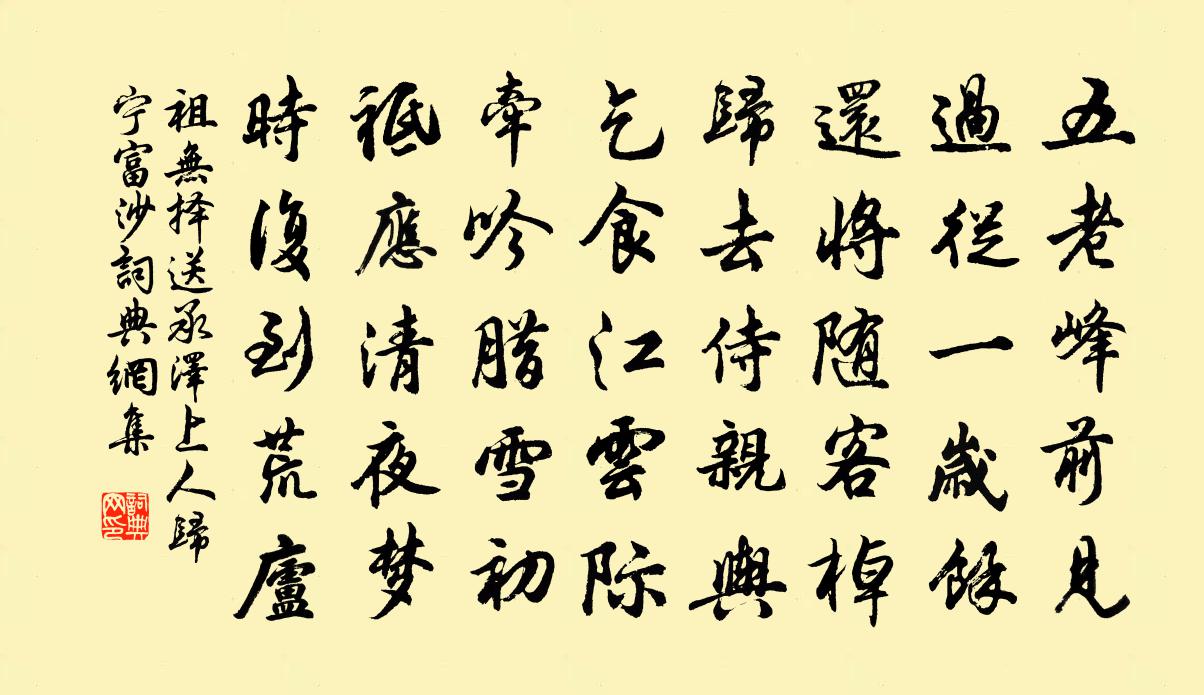 五老峰前見
過從一歲餘
還將随客棹
歸去侍親輿
乞食江雲际
牽吟腊雪初
祗應清夜梦
時復到荒廬
祖無择送承澤上人歸
宁富沙詞典網集
詞典网印